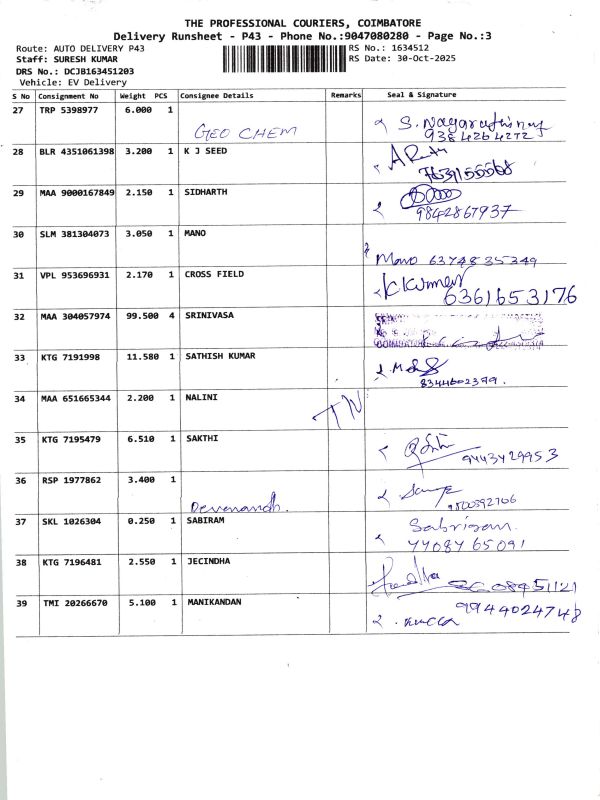 THE PROFESSIONAL COURIERS, COIMBATORE
Delivery Runsheet - P43 - Phone No.:9047080280 - Page No.:3
Route: AUTO DELIVERY P43 RS No.: 1634512
Staff: SURESH KUMAR RS Date: 30-Oct-2025
DRS No.: DCJB163451203
Vehicle: EV Delivery
S No Consignment No Weight PCS Consignee Details Remarks Seal & Signature
27 TRP 5398977 6.000 1
GEO CHEM
9384264272
28 BLR 4351061398 3.200 1 K J SEED
29 MAA 9000167849 2.150 1 SIDHARTH
9842867937
30 SLM 381304073 3.050 1 MANO
Mano 6374835349
31 VPL 953696931 2.170 1 CROSS FIELD
6361653176
32 MAA 304057974 99.500 4 SRINIVASA
33 KTG 7191998 11.580 1 SATHISH KUMAR
8344602379.
34 MAA 651665344 2.200 1 NALINI
35 KTG 7195479 6.510 1 SAKTHI
9443729953
36 RSP 1977862 3.400 1
Devanandh.
37 SKL 1026304 0.250 1 SABIRAM
38 KTG 7196481 2.550 1 JECINDHA
39 TMI 20266670 5.100 1 MANIKANDAN
9944024748